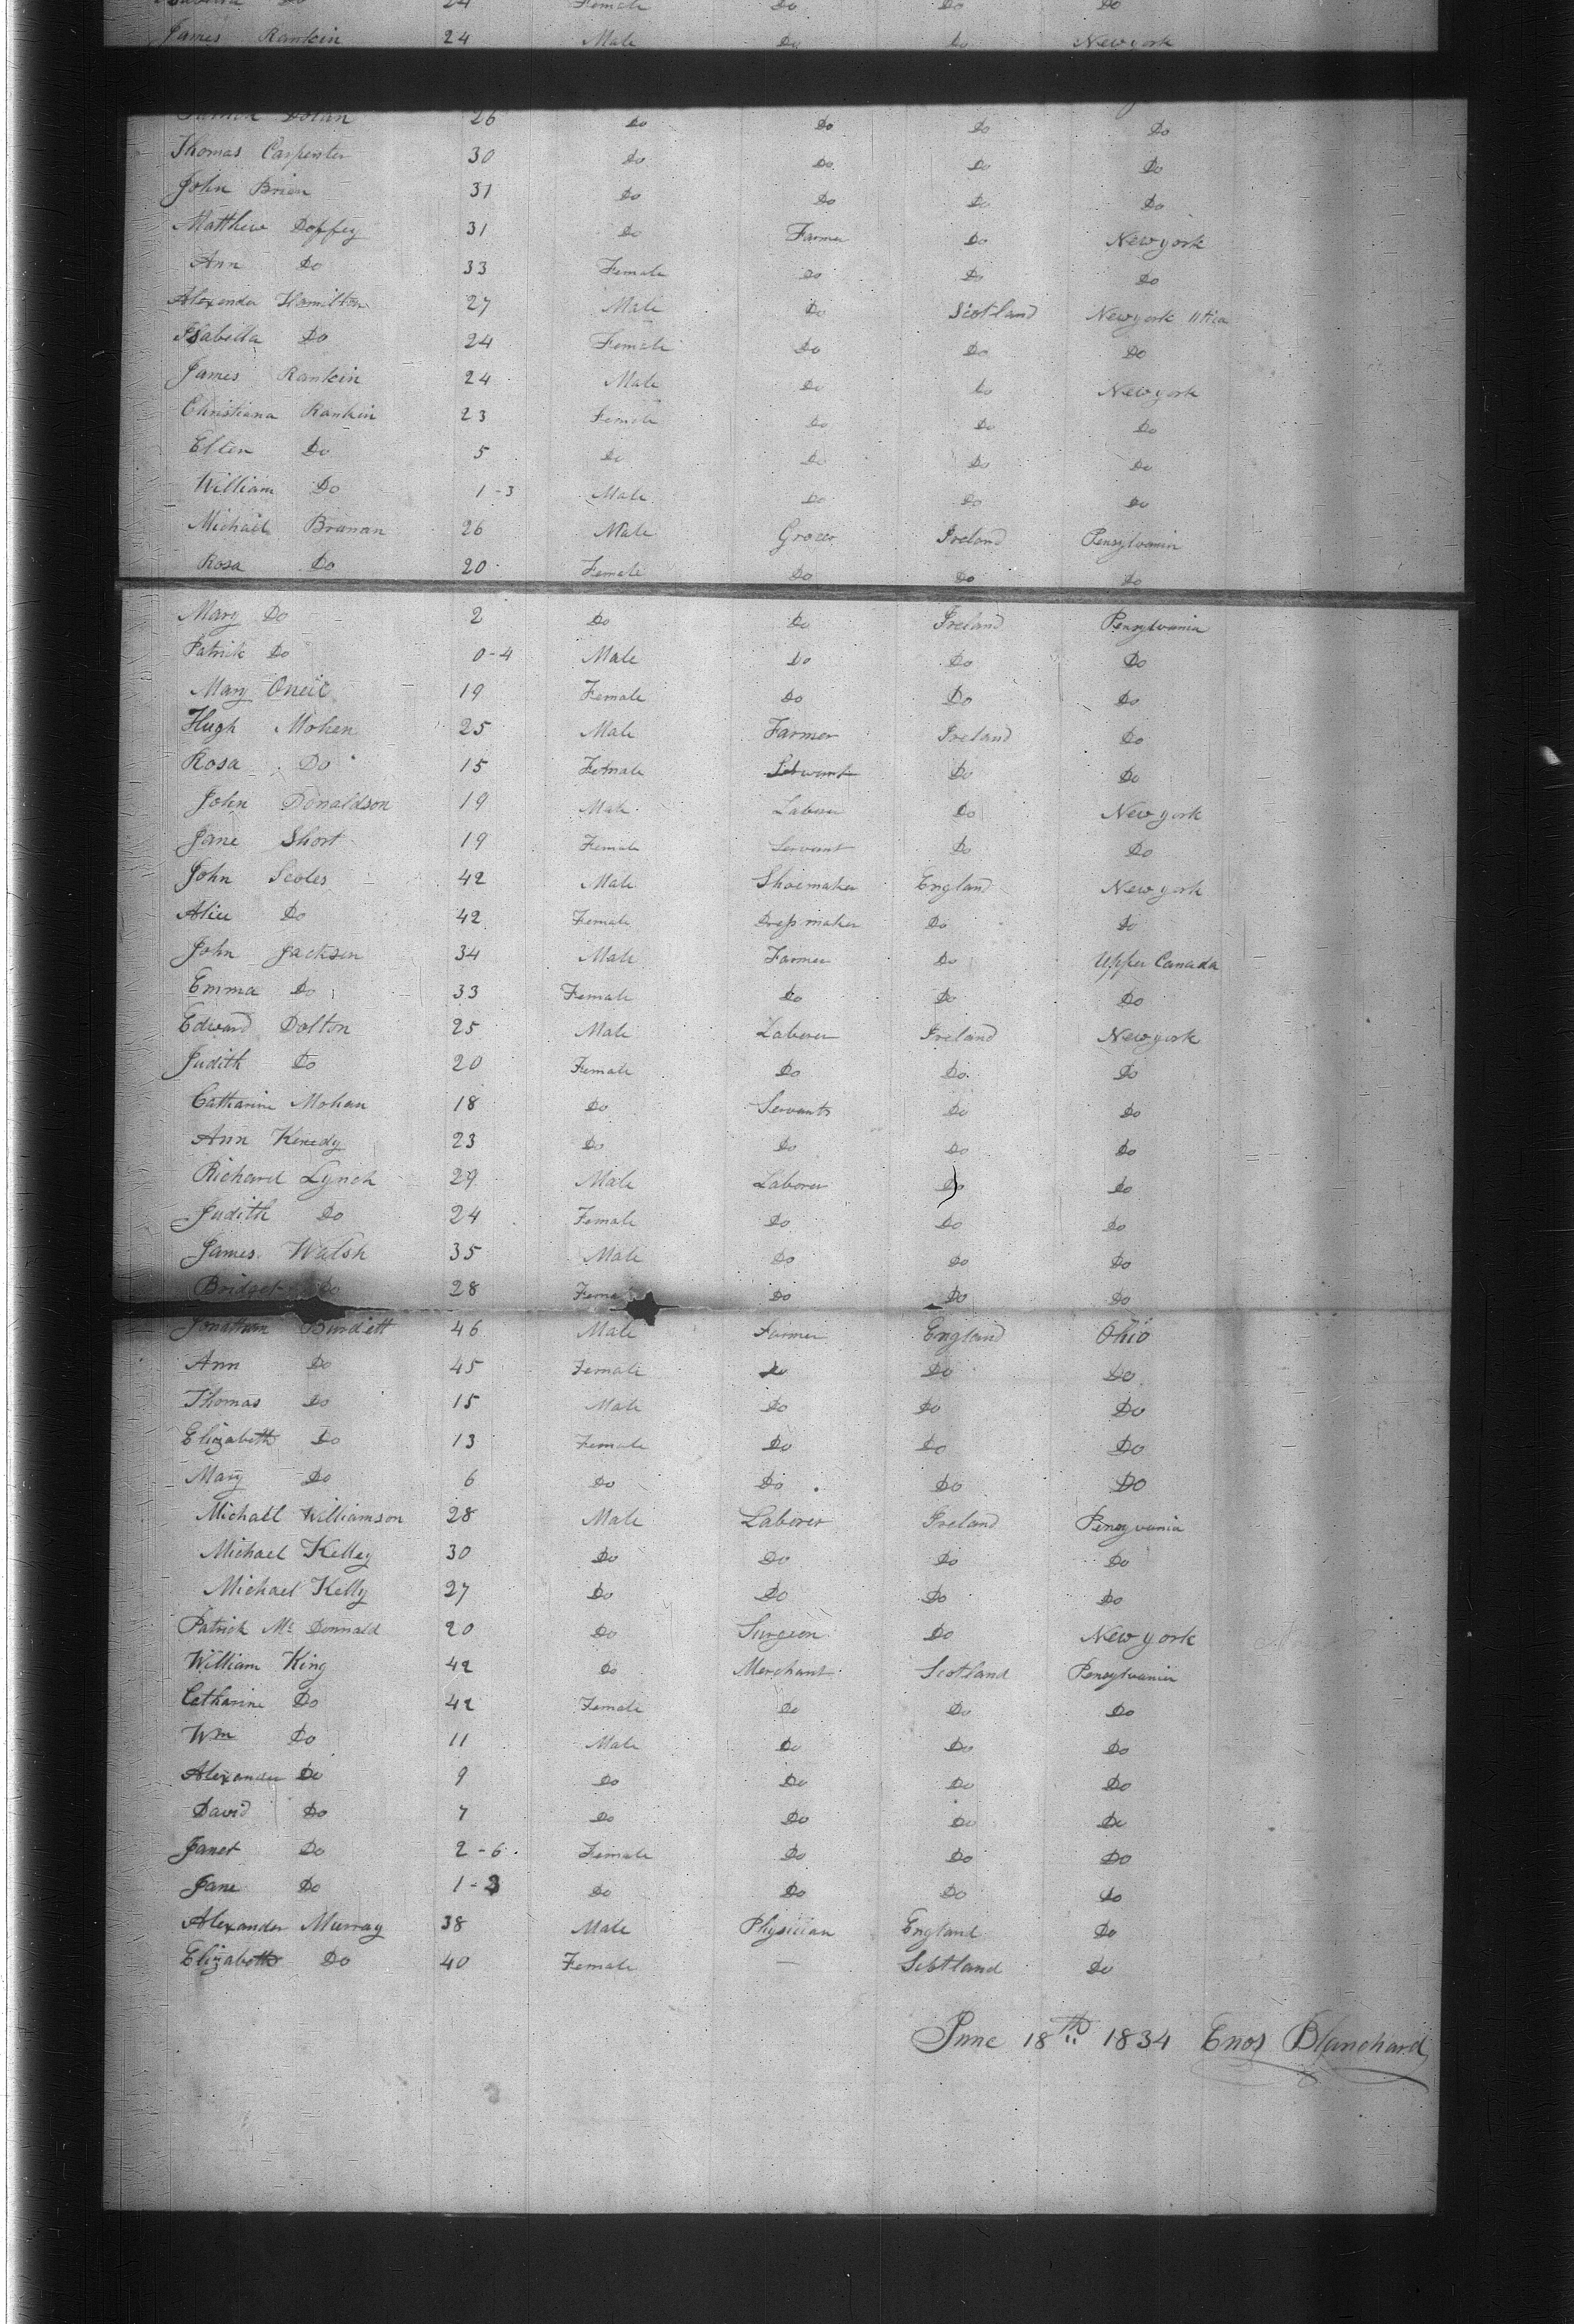 Isabella Do 24 Female Do Do Do
James Rankin 24 Male Do Do Newyork
Dolan 26 Do Do Do Do
Thomas Carpenter 30 Do Do Do Do
John Brien 31 Do Do Do Do
Matthew Doffey 31 Do Farmer Do Newyork
Ann Do 33 Female Do Do Do
Alexender Hamilton 27 Male Do Scotland Newyork Utica
Isabella Do 24 Female Do Do Do
James Rankin 24 Male Do Do Newyork
Christiana Rankin 23 Female Do Do Do
Ellen Do 5 Do Do Do Do
William Do 1-3 Male Do Do Do
Michael Branan 26 Male Grocer Ireland Pensylvanin
Rosa Do 20 Female Do Do Do
Mary Do 2 Do Do Ireland Pensylvania
Patrik Do 0-4 Male Do Do Do
Mary Oneil 19 Female Do Do Do
Hugh Mohen 25 Male Farmer Ireland Do
Rosa Do 15 Female Servant Do Do
John Donaldson 19 Male Laborer Do New york
Jane Short 19 Female Servant Do Do
John Scoles 42 Male Shoemaker England New york
Alice Do 42 Female Dress maker Do Do
John Jackson 34 Male Farmer Do Upper Canada
Emma Do 33 Female Do Do Do
Edward Dolton 25 Male Laborer Ireland Newyork
Judith Do 20 Female Do Do Do
Catharine Mohan 18 Do Servants Do Do
Ann Kenedy 23 Do Do Do Do
Richard Lynch 29 Male Laborer Do Do
Judith Do 24 Female Do Do Do
James Walsh 35 Male Do Do Do
Bridget Do 28 Fema Do Do Do
Jonathan Burdett 46 Male Farmer England Ohio
Ann Do 45 Female Do Do Do
Thomas Do 15 Male Do Do Do
Elizabeth Do 13 Female Do Do Do
Mary Do 6 Do Do Do Do
Michall Williamson 28 Male Laborer Ireland Pensyvania
Michael Kelley 30 Do Do Do Do
Michael Kelly 27 Do Do Do Do
Patrick Mc Donnald 20 Do Surgeon Do New york
William King 42 Do Merchant Scotland Pensylvanier
Catharine Do 42 Female Do Do Do
Wm Do 11 Male Do Do Do
Alexander Do 9 Do Do Do Do
David Do 7 Do Do Do Do
Janet Do 2-6 Female Do Do Do
Jane Do 1-3 Do Do Do Do
Alexander Murray 38 Male Physician England Do
Elizabeth Do 40 Female — Scotland Do
June 18th 1834 Enos Blanchard